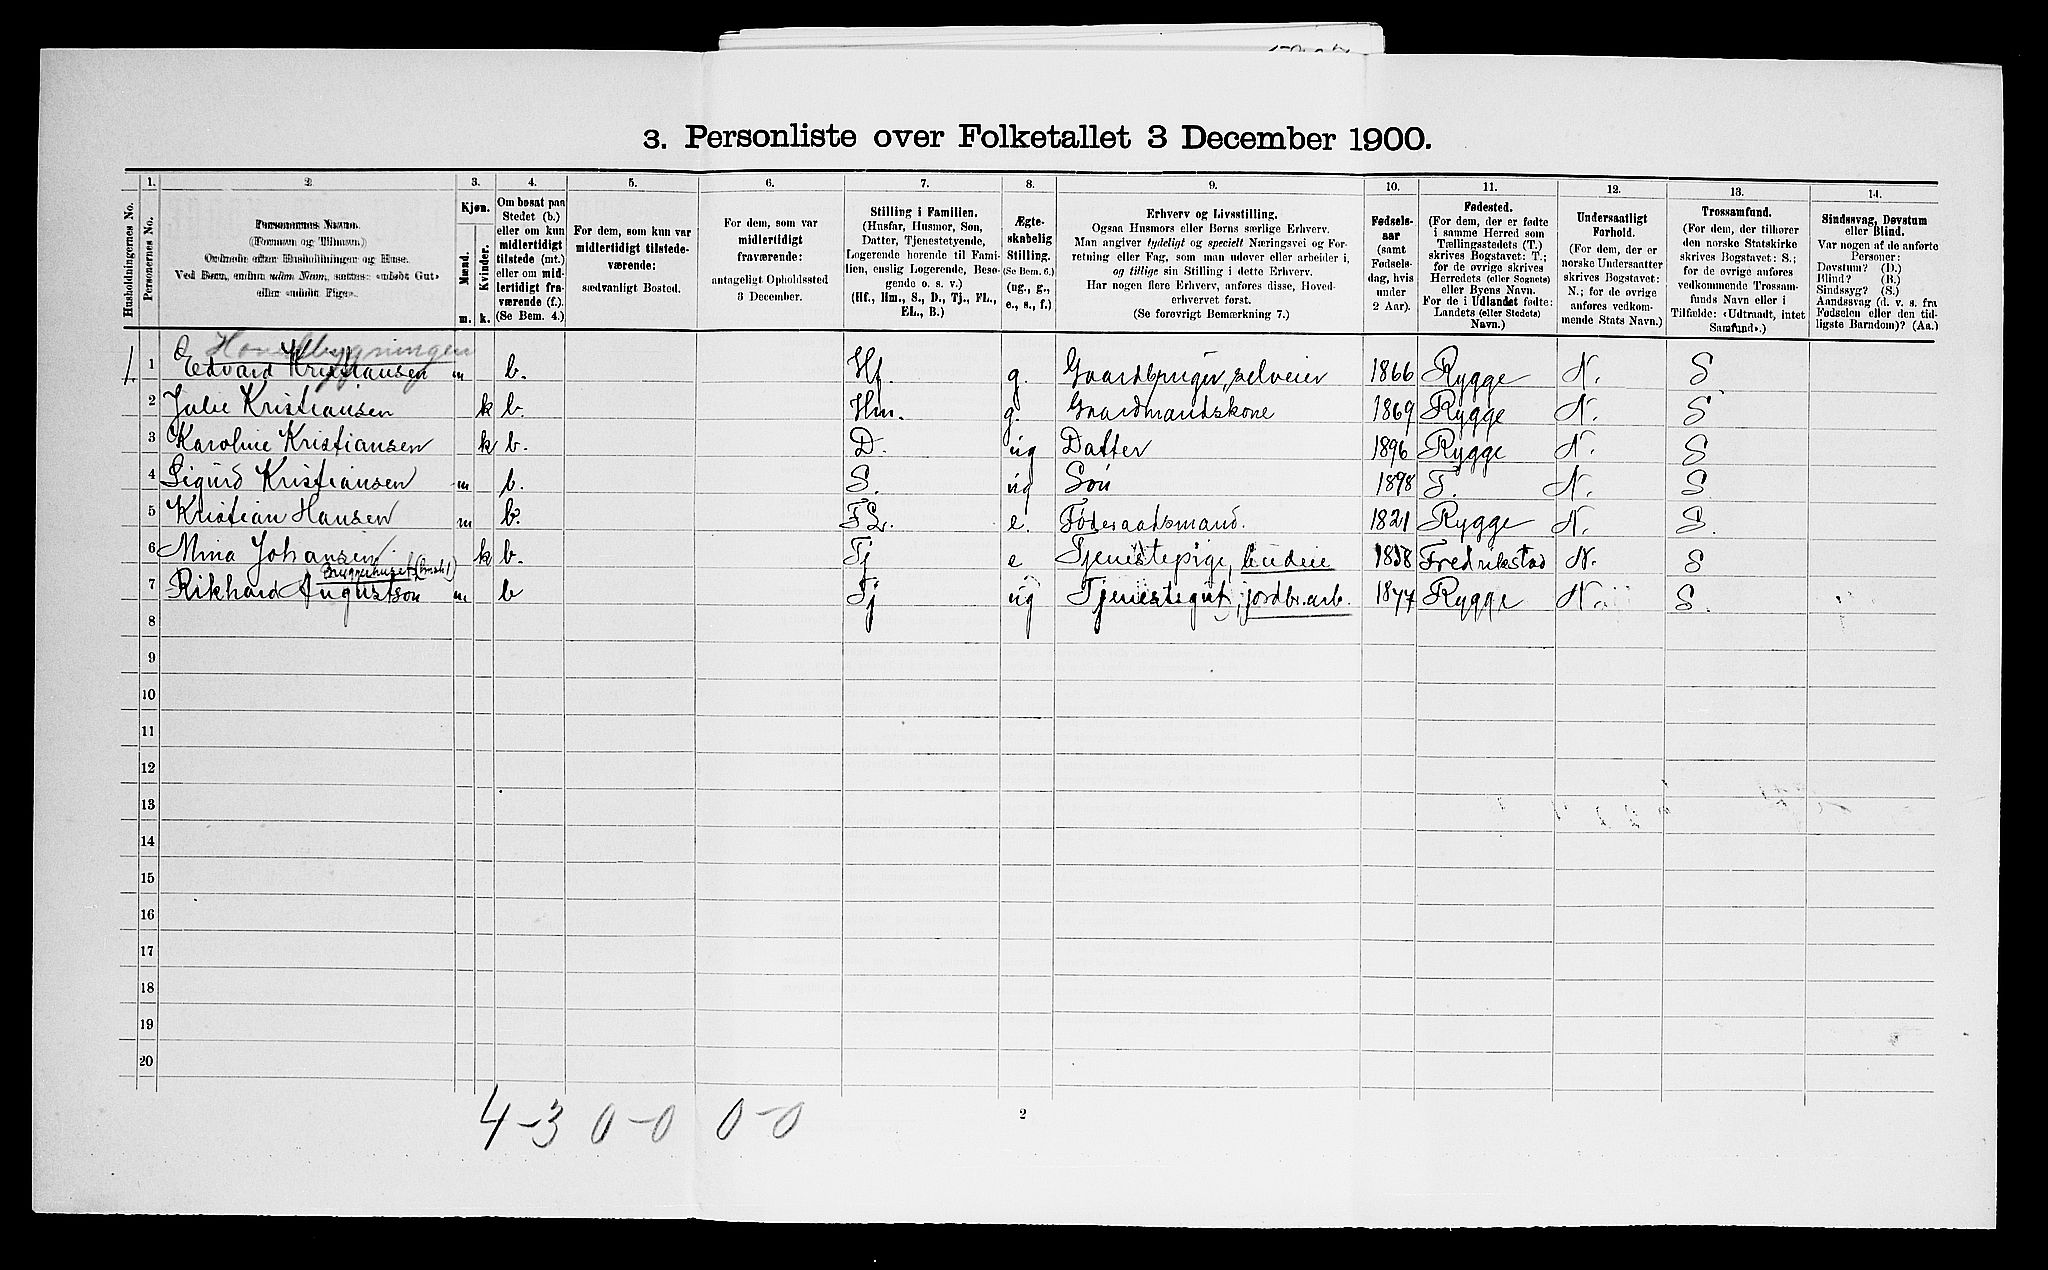 3. Personliste over Folketallet 3 December 1900.
1. 2 3. 4. 5. 6. 7. 8. 9. 10. 11. 12. 13. 14.
Husholdningernes No.
Personernes No.
Personernes Navne.
(Fornavn og Tilnavn.)
Ordnede efter Husholdninger og Huse.
Ved Børn, endnu uden Navn, sættes: «udøbt Gut»
eller «udøbt Pige».
Kjøn.
Mænd.
Kvinder.
m. k.
Om bosat paa
Stedet (b.)
eller om kun
midlertidigt
tilstede (mt.)
eller om mid-
lertidigt fra-
værende (f.).
(Se Bem. 4.)
For dem, som kun var
midlertidigt tilstede-
værende:
sædvanligt Bosted.
For dem, som var
midlertidigt
fraværende:
antageligt Opholdssted
3 December.
Stilling i Familien.
(Husfar, Husmor, Søn,
Datter, Tjenestetyende,
Logerende hørende til Fami-
lien, enslig Logerende, Besø-
gende o. s. v.)
(Hf., Hm., S., D., Tj., FL.,
EL., B.)
Ægte-
skabelig
Stilling.
(Se Bem. 6.)
(ug., g.,
e., s., f.)
Erhverv og Livsstilling.
Ogsaa Husmors eller Børns særlige Erhverv.
Man angiver tydeligt og specielt Næringsvei og For-
retning eller Fag, som man udøver eller arbeider i,
og tillige sin Stilling i dette Erhverv.
Har nogen flere Erhverv, anføres disse, Hoved-
erhvervet først.
(Se forøvrigt Bemærkning 7.)
Fødsels-
aar
(samt
Fødsels-
dag, hvis
under
2 Aar).
Fødested.
(For dem, der er fødte
i samme Herred som
Tællingsstedets (T.)
skrives Bogstavet: T.;
for de øvrige skrives
Herredets (eller Sognets)
eller Byens Navn.
For de i Udlandet fødte:
Landets (eller Stedets)
Navn.)
Undersaatligt
Forhold.
(For dem, der er
norske Undersaatter
skrives Bogstavet:
N.; for de øvrige
anføres vedkom-
mende Stats Navn.)
Trossamfund.
(For dem, der tilhører
den norske Statskirke
skrives Bogstavet: S.;
for de øvrige anføres
vedkommende Trossam-
funds Navn eller i
Tilfælde: «Udtraadt, intet
Samfund».)
Sindssvag, Døvstum
eller Blind.
Var nogen af de anførte
Personer:
Døvstum? (D.)
Blind? (B.)
Sindssyg? (S.)
Aandssvag (d. v. s. fra
Fødselen eller den tid-
ligste Barndom)? (Aa.)
Hovedbygningen
1. 1 Edvard Kristiansen m b. Hf. g. Gaardbruger, selveier 1866 Rygge N. S
2 Julie Kristiansen k b. Hm. g. Gaardmandskone 1869 Rygge N. S
3 Karoline Kristiansen k b. D. ug Datter 1896 Rygge N. S
4 Sigurd Kristiansen m b. S. ug Søn 1898 T. N. S
5 Kristian Hansen m b. FL. e. Føderaadsmand. 1821 Rygge N. S
6 Mina Johansen. k b. Tj e Tjenestepige, budeie 1858 Fredrikstad N. S
Bryggerhuset (beskl)
7 Rikhard Augustson m b Tj ug Tjenestegut, jordbr.arb. 1877 Rygge N. S.
8
9
10
11
12
13
14
15
16
17
18
19
20
4-3 0-0 0-0
2